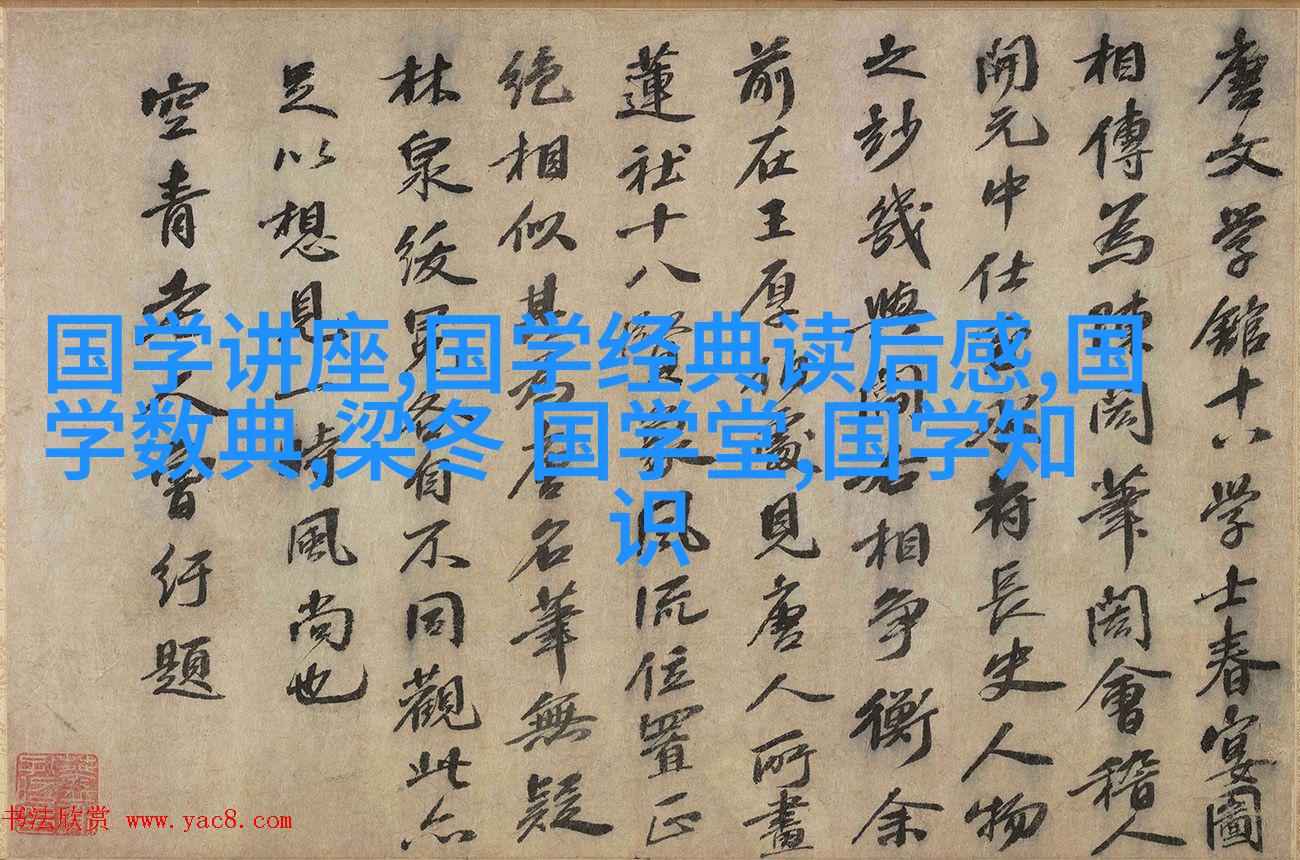 国学讲座,国学经典读后感,国
学数典,梁冬 国学堂,国学知
识
唐文学館十八学士春宴圖
相傳為陳閎筆閎會稽人
開元中仕府長史人物
之妙幾與閻右相争衡余
前在王厚處見唐人所畫
蓮社十八風流位置正
絶相似其為唐名筆無疑
林泉各有不同觀此亦
足以想見一時風尚也
空青老人曾紆題
书法欣赏 www.yac8.com